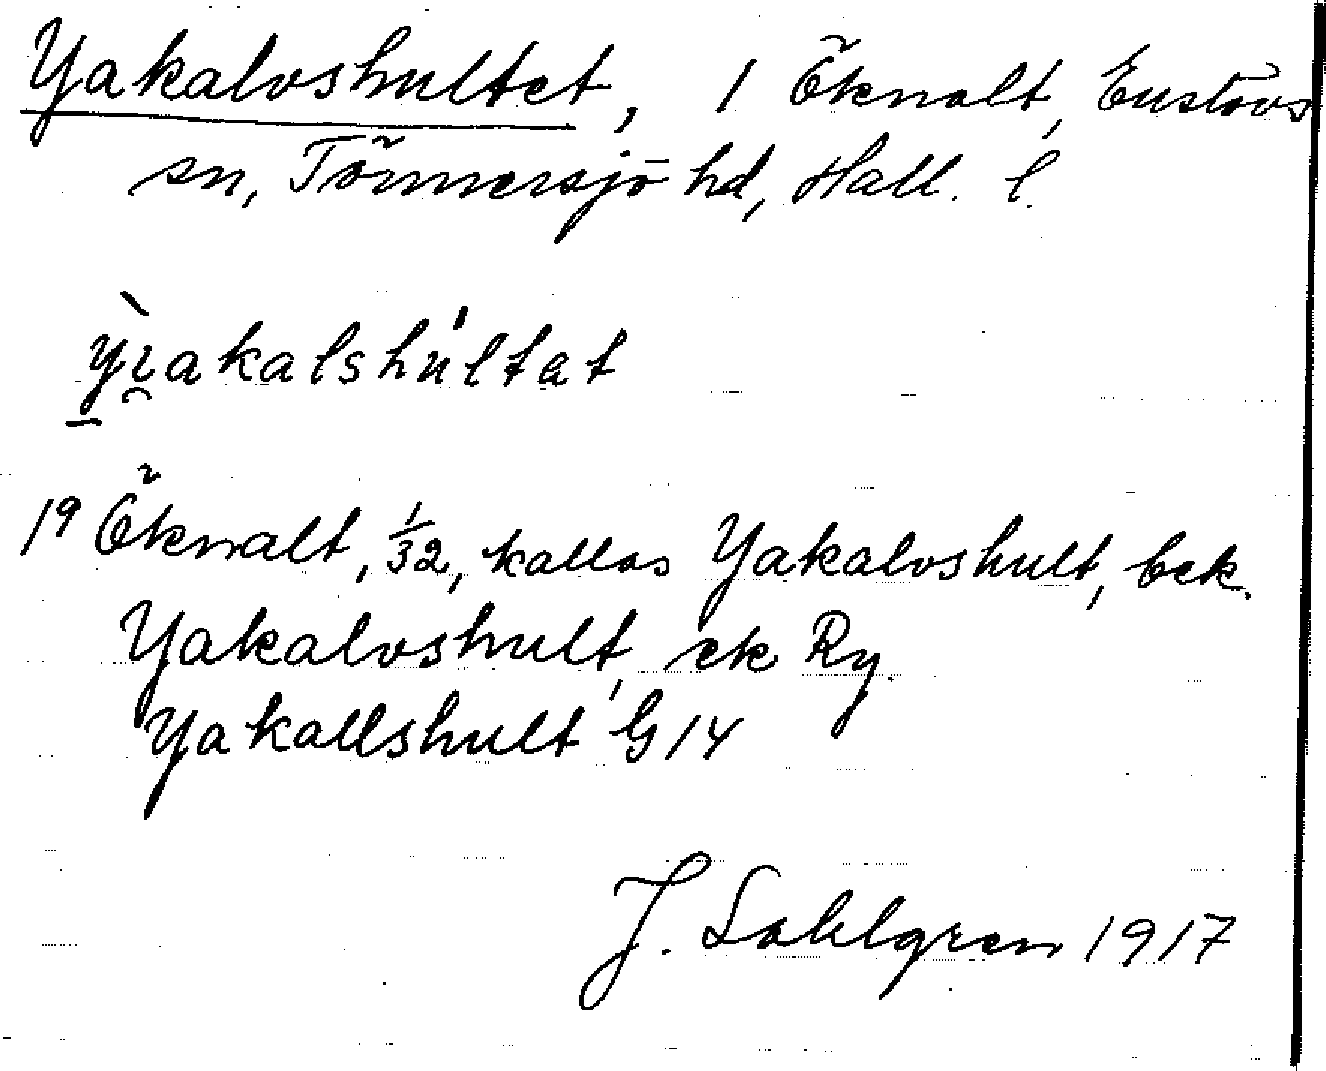 Yakalvshultet, 1 Öknalt, Enslövs
sn, Tönnersjö hd, Hall. l.
yɩakalshultat
19 Öknalt, 1/32, kallas Yakalvshult, bek.
Yakalvshult, ek Ry.
Yakallshult G 14
J. Sahlgren 1917